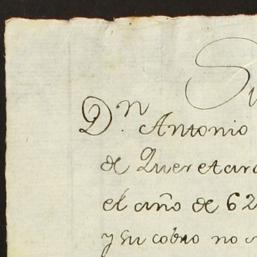 Dn. Antonio
de Queretaro
el año de 62
y su cobro no